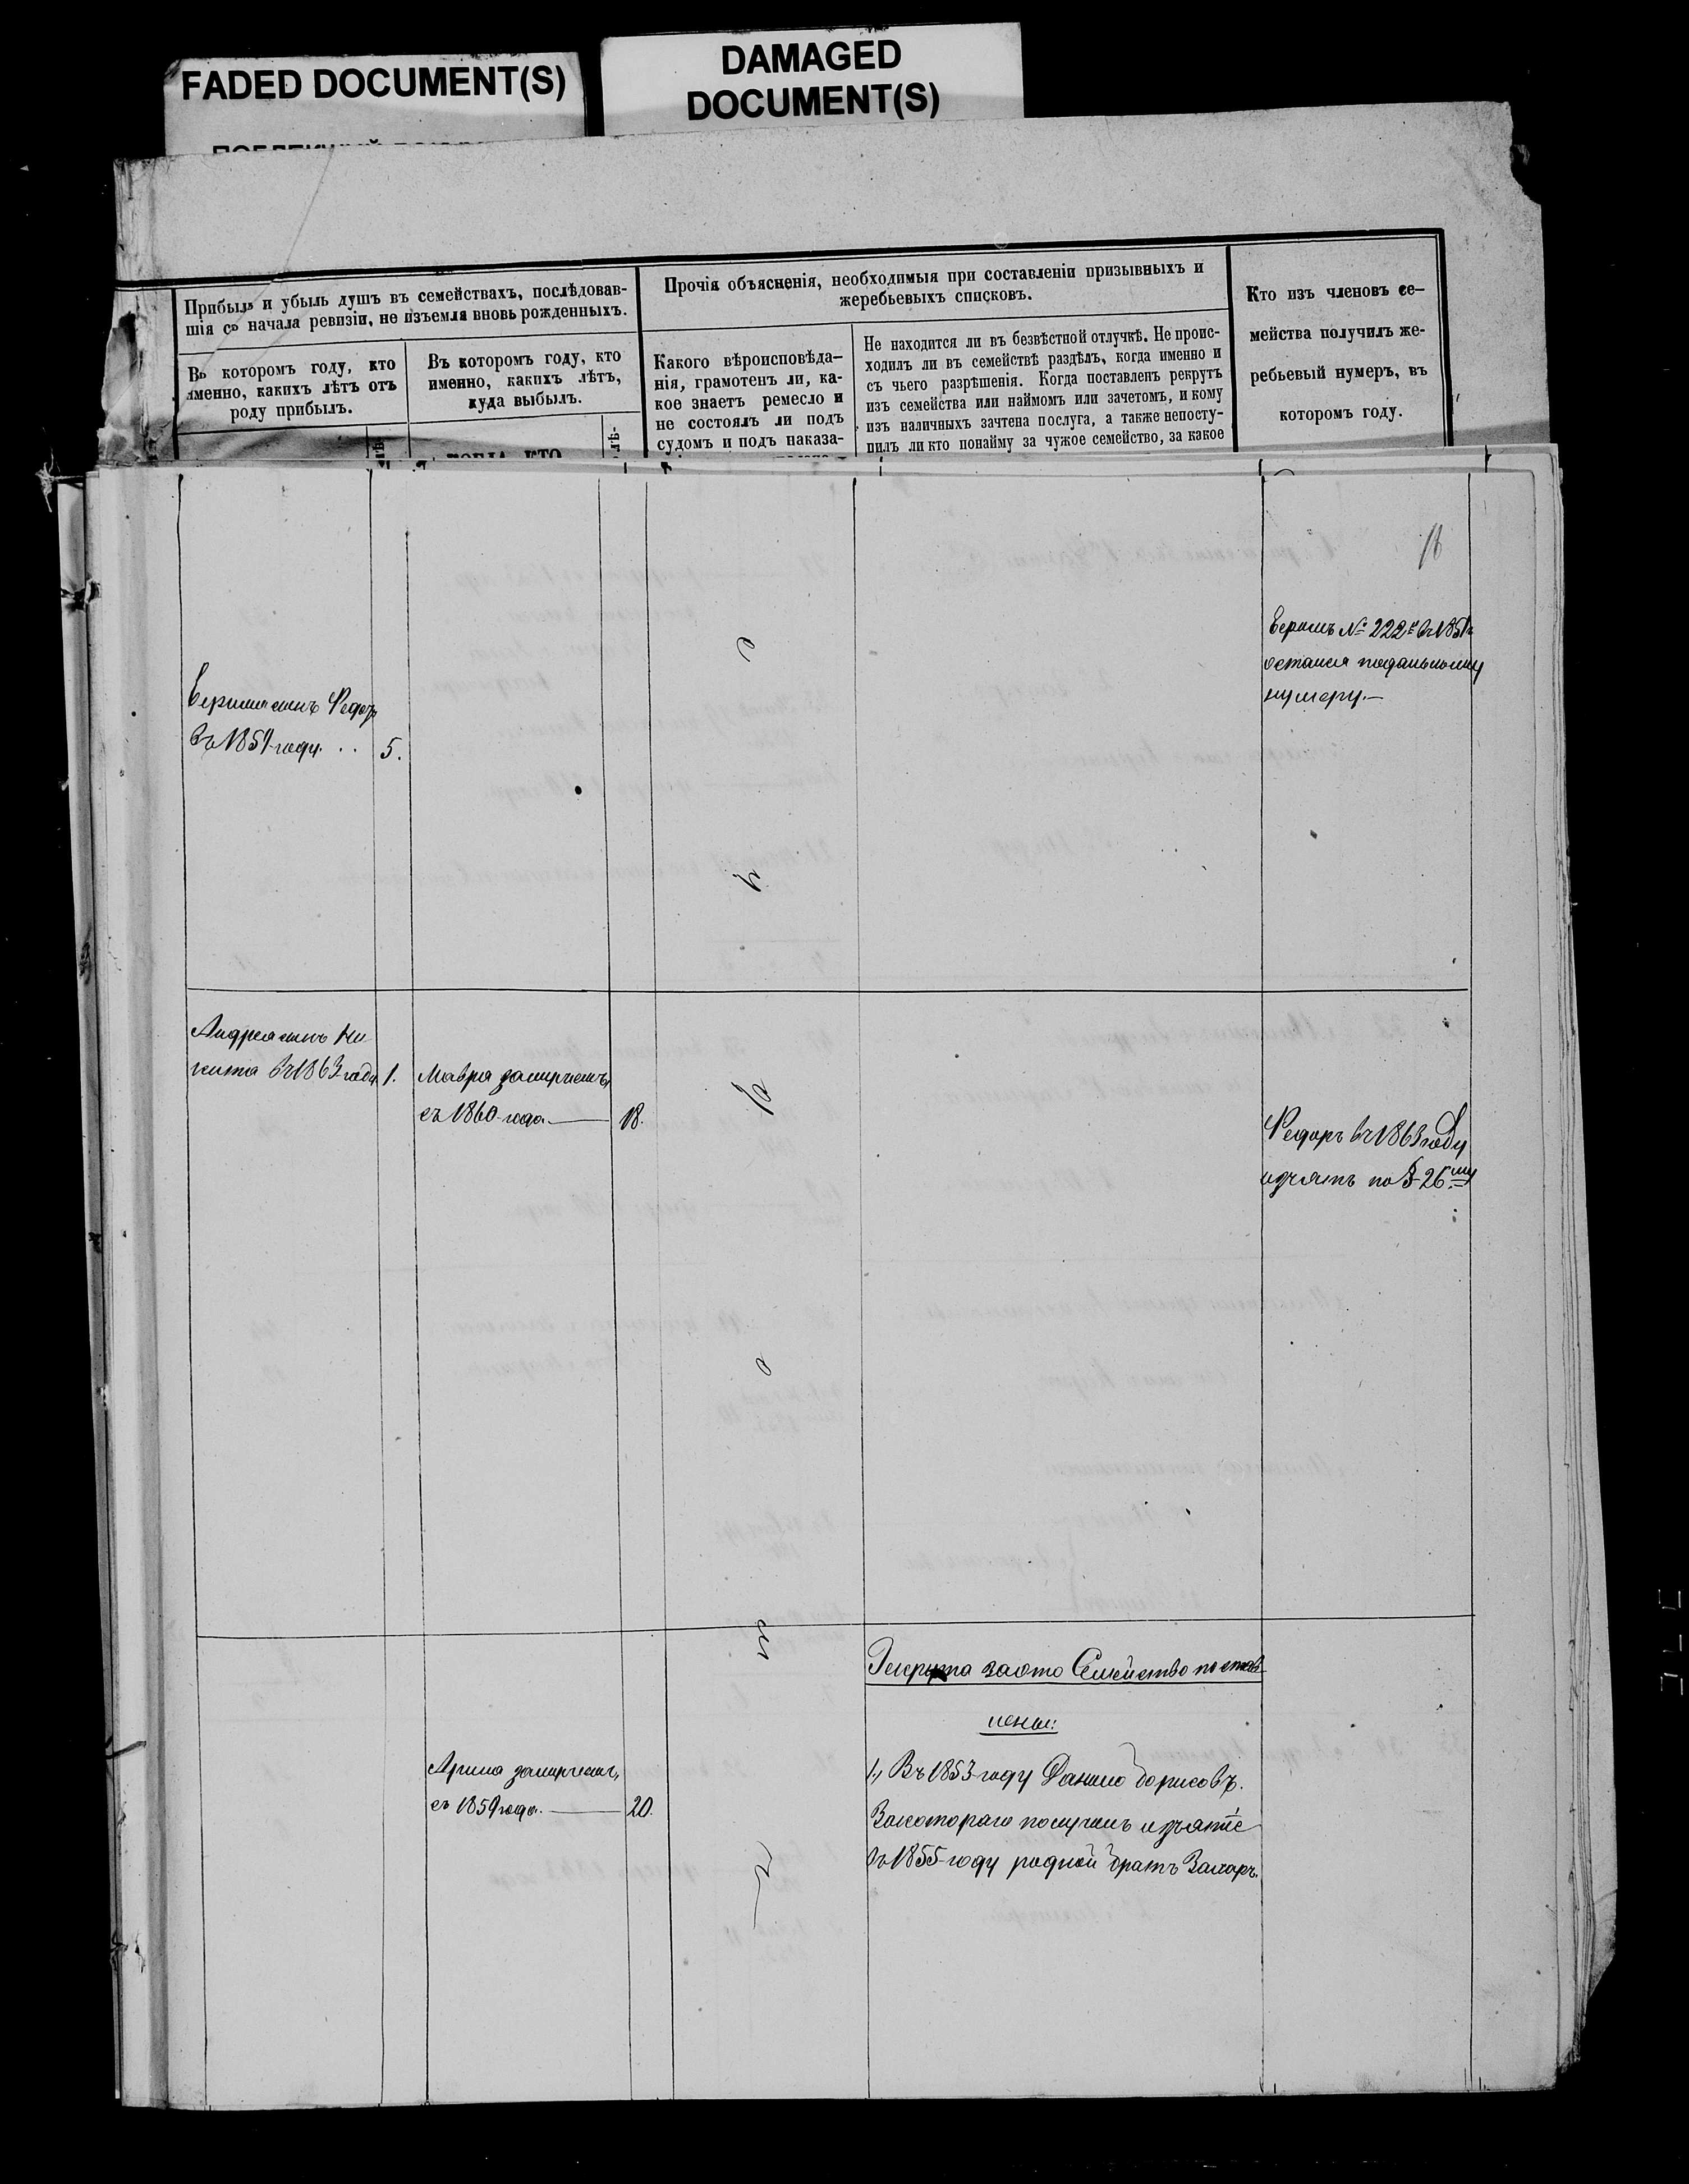 FADED DOCUMENT(S)
DAMAGED
DOCUMENT(S)
Прибыль и убыль душъ въ семействахъ, послѣдовав-
шія съ начала ревизіи, не изъемля вновь рожденныхъ.
Въ которомъ году, кто
именно, какихъ лѣтъ отъ
роду прибылъ.
Въ которомъ году, кто
именно, какихъ лѣтъ,
куда выбылъ.
Прочія объясненія, необходимыя при составленіи призывныхъ и
жеребьевыхъ списковъ.
Какого вѣроисповѣда-
нія, грамотенъ ли, ка-
кое знаетъ ремесло и
не состоялъ ли подъ
судомъ и подъ наказа-
Не находится ли въ безвѣстной отлучкѣ. Не проис-
ходилъ ли въ семействѣ раздѣлъ, когда именно и
съ чьего разрѣшенія. Когда поставленъ рекрутъ
изъ семейства или наймомъ или зачетомъ, и кому
изъ наличныхъ зачтена послуга, а также непосту-
пилъ ли кто понайму за чужое семейство, за какое
Кто изъ членовъ се-
мейства получилъ же-
ребьевый нумеръ, въ
которомъ году.
№ 222й
остался подальному
нумеру.—
сынъ Федоръ
году . . 5.
Андрея сынъ Ни
кита въ 1863 году 1.
Мавра замужемъ,
съ 1860 года.— 18.
Федоръ въ 1863 году
изъятъ по § 26му
Рекрута заото Семейство постав
лены:
Арина замужемъ,
съ 1859 года.— 20.
1, Въ 1853 году Данило Борисовъ.
Закотораго получилъ изъятіе
въ 1855 году родной братъ Захаръ.